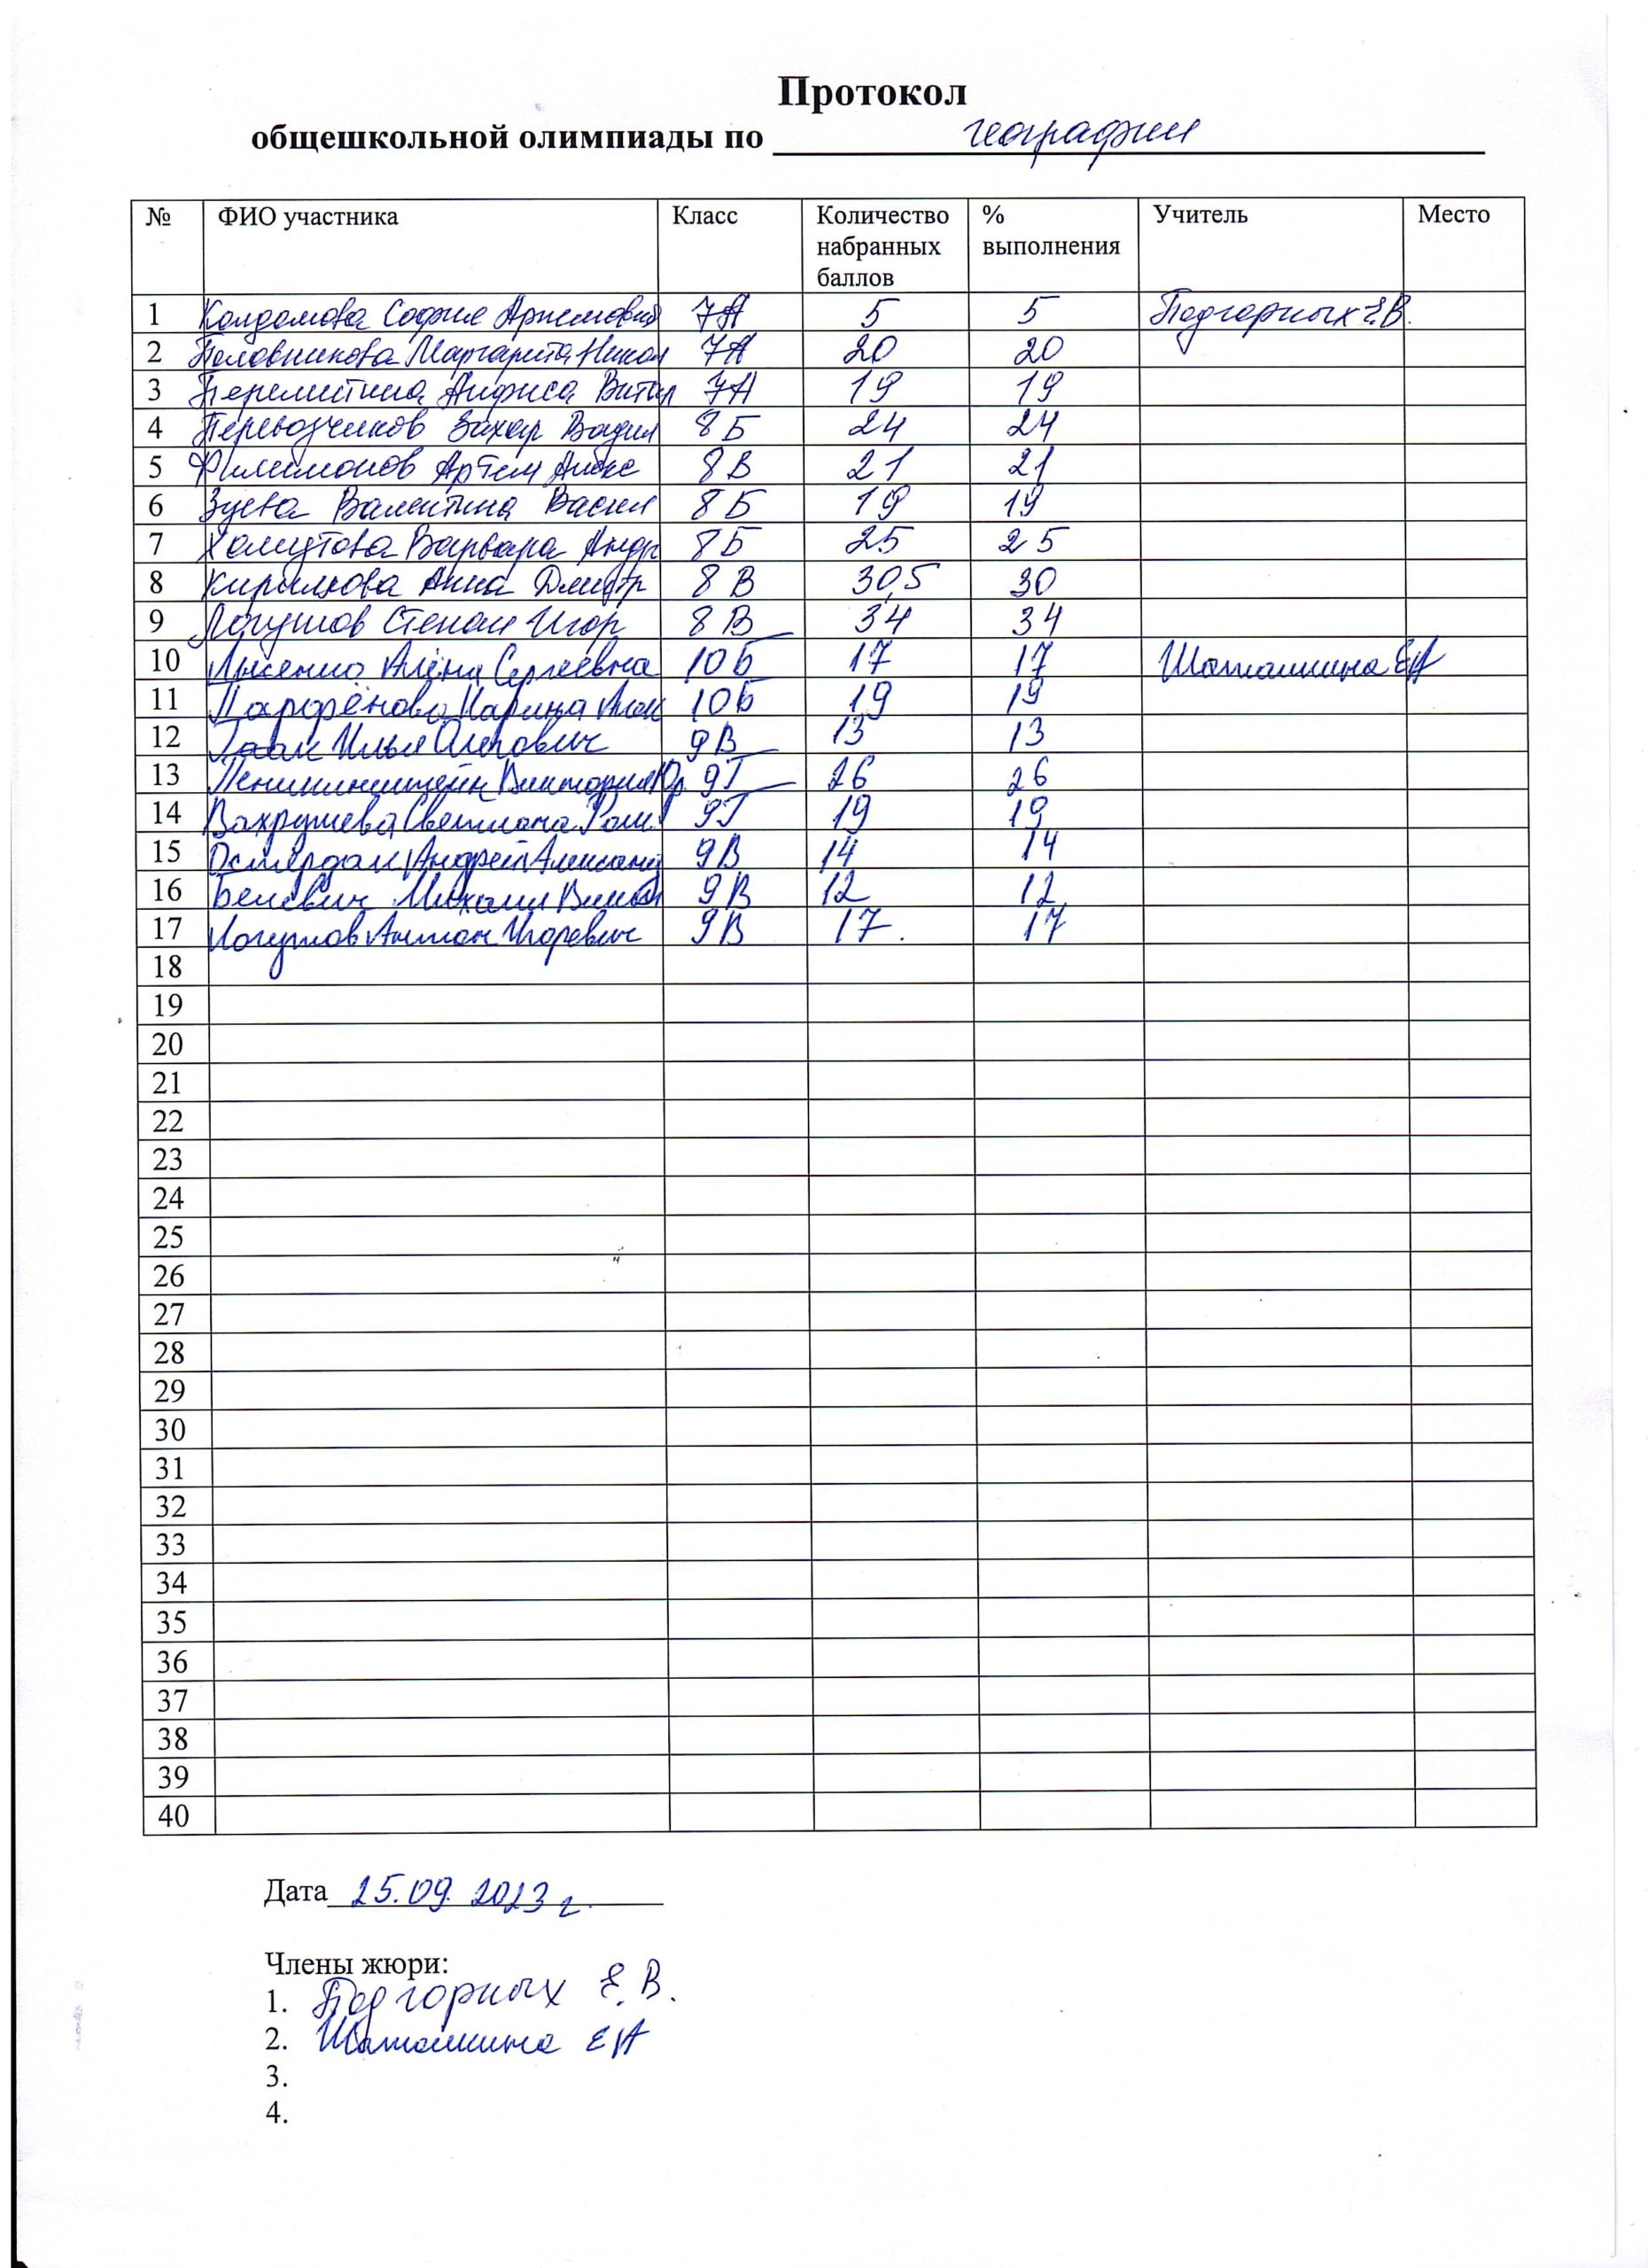 Протокол
общешкольной олимпиады по географии
№ ФИО участника Класс Количество набранных баллов % выполнения Учитель Место
1 Колдомова Софие Артемовна 7А 5 5 Подгорных Е.В.
2 Половникова Маргарита Никол 7А 20 20
3 Перемитина Анфиса Витал 7А 19 19
4 Перевозчиков Захар Вадим 8Б 24 24
5 Филимонов Артем Алекс 8В 21 21
6 Зуева Валентина Васил 8Б 19 19
7 Хомутова Варвара Андр 8Б 25 25
8 Анна Дмитр 8В 30,5 30
9 Логушов Степан Игор 8В 34 34
10 Лысенко Алёна Сергеевна 10Б 17 17 Шаталина ЕА
11 Парфёнова Карина 10Б 19 19
12 Гаан Илья Олегович 9В 13 13
13 Виктория Юр. 9Г 26 26
14 Вахрушева Светлана Ром. 9Г 19 19
15 Андрей Александ 9В 14 14
16 Белевич Михаил 9В 12 12
17 Логушов Антон Игоревич 9В 17. 17
18
19
20
21
22
23
24
25
26
27
28
29
30
31
32
33
34
35
36
37
38
39
40
Дата 25.09.2023 г.
Члены жюри:
1. Подгорных Е.В.
2. Шаталина ЕА
3.
4.